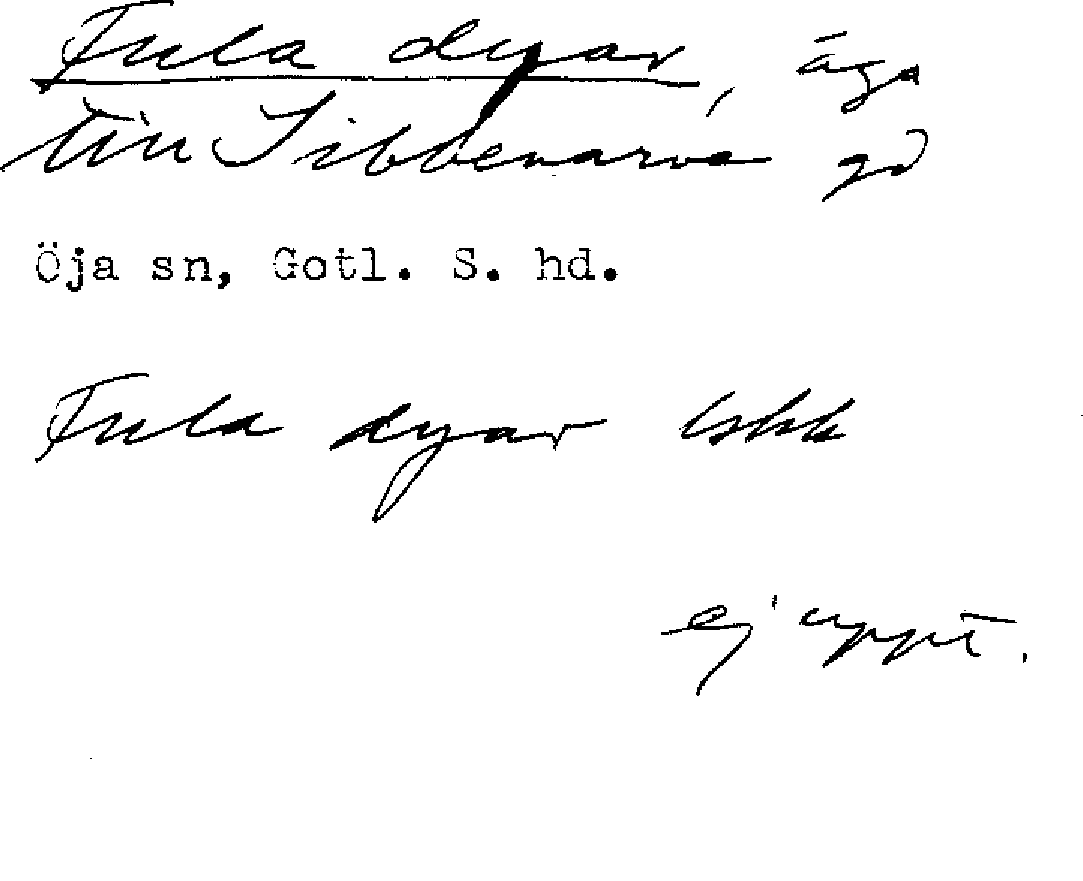 Fula dyar, äga
till Sibbenarva gd
Öja sn, Gotl. S. hd.
Fula dyar lskk
ej uppt.